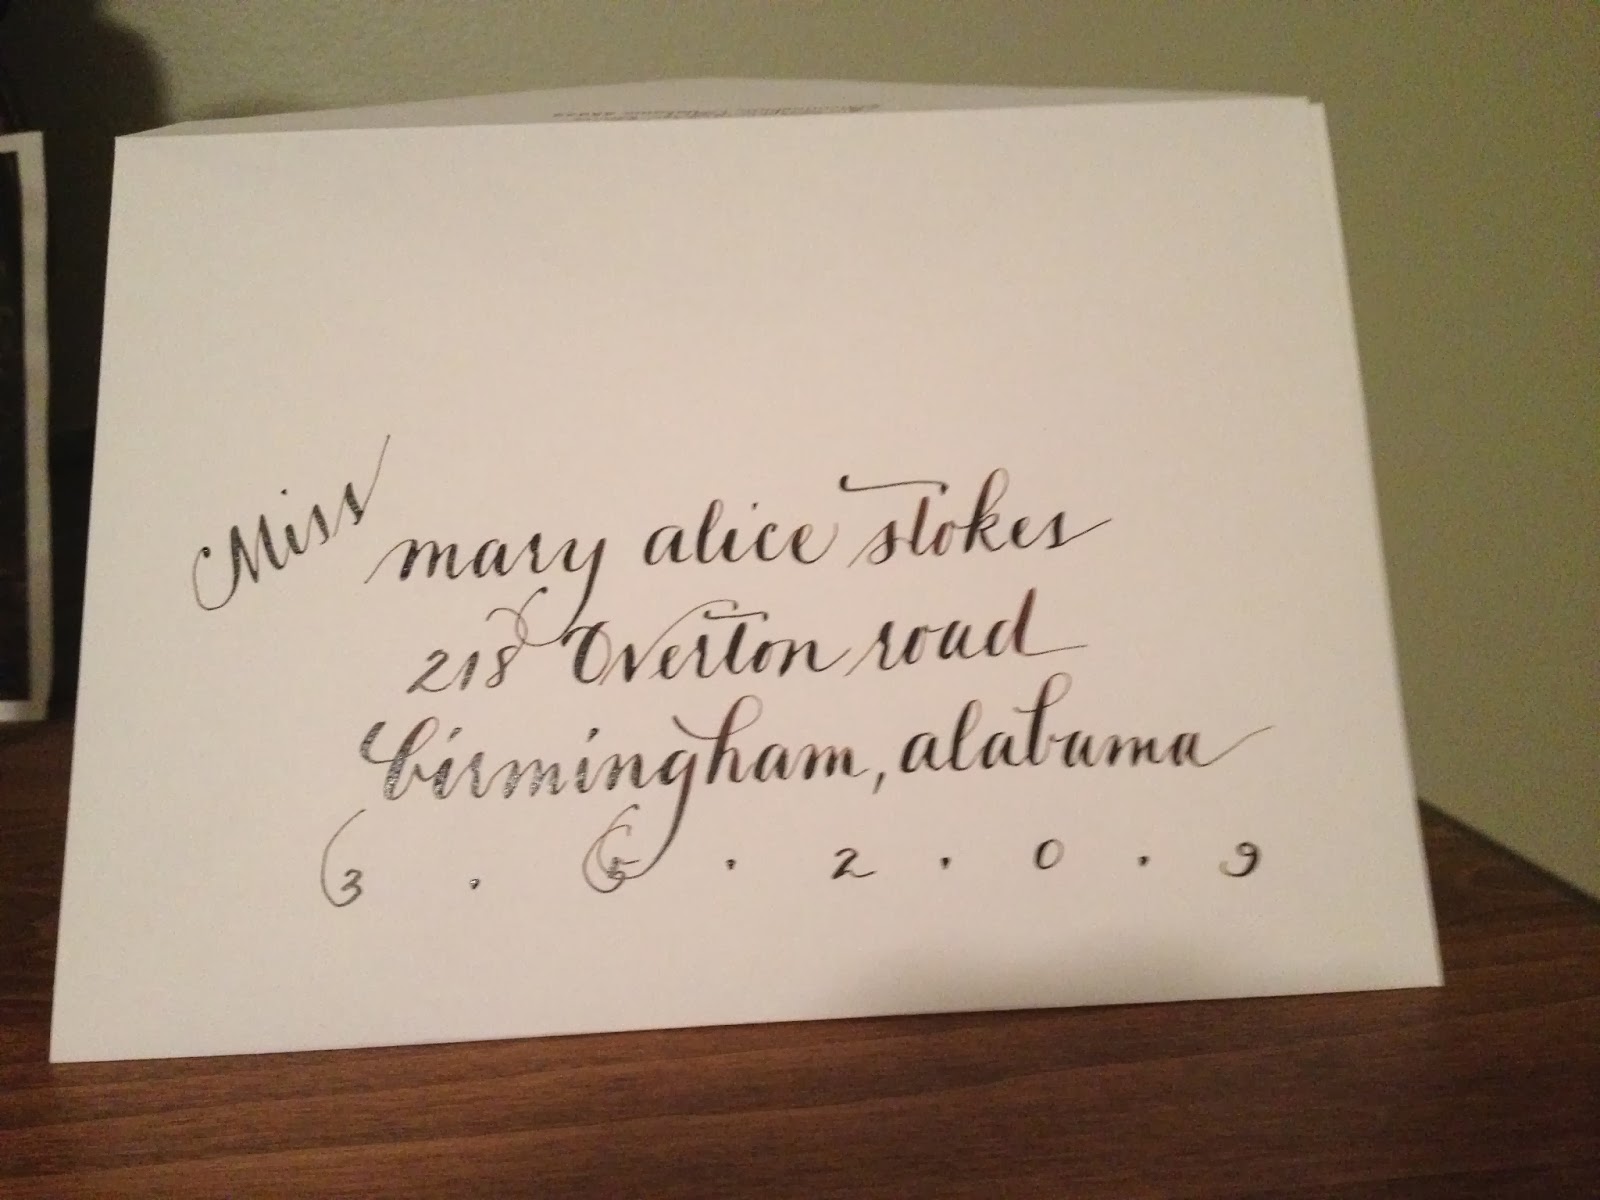 Miss
mary alice stokes
218 Overton road
birmingham, alabama
3 . 5 . 2 . 0 . 9